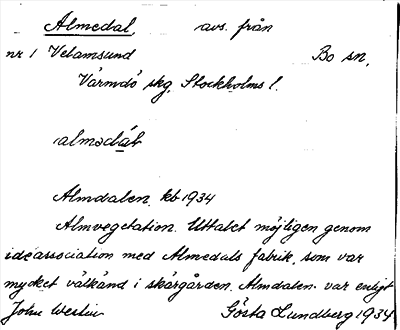 Almedal, avs. från
nr 1 Velamsund Bo sn,
Värmdö skg, Stockholms l.
almedàl
Almdalen kb 1934
Almvegetation. Uttalet möjligen genom
idéassociation med Almedals fabrik, som var
mycket välkänd i skärgården. Almdalen var enligt
John Westin Gösta Lundberg 1934